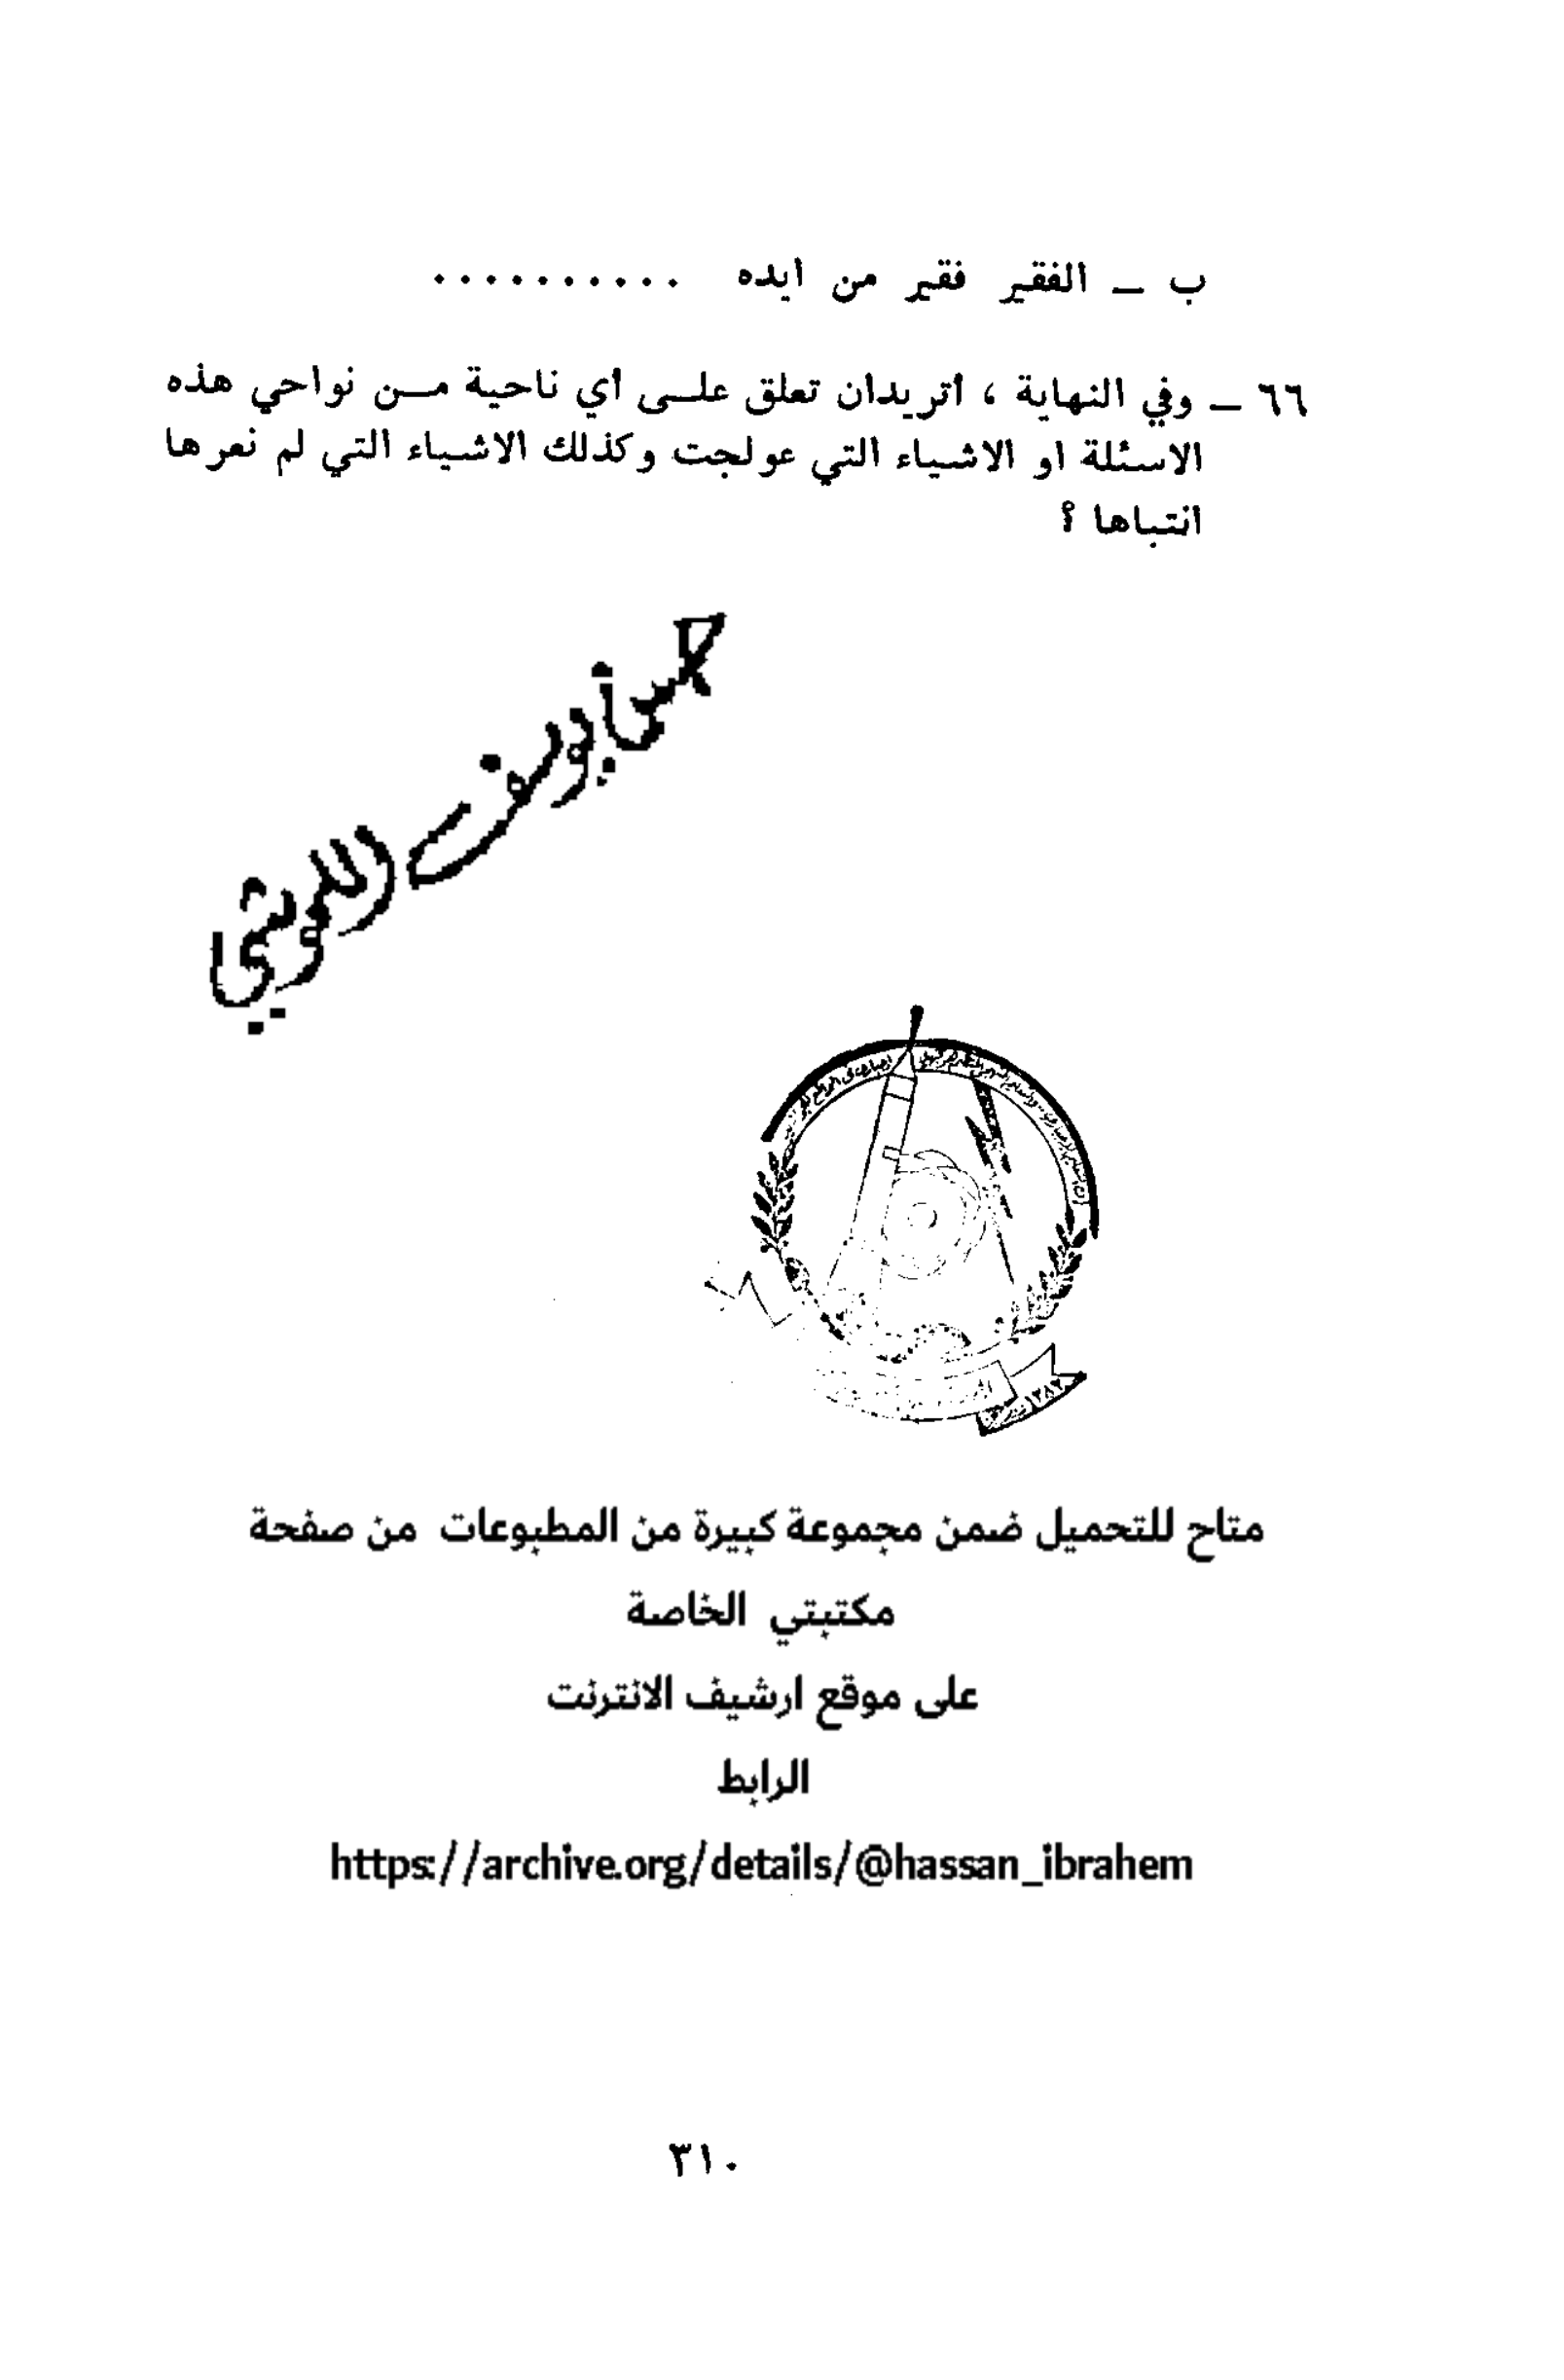 ب ـ الفقير فقير من ايده ..........
٦٦ ـ وفي النهاية ، اتريدان تعلق علـى أي ناحية مـن نواحي هذه
الاسئلة او الاشياء التي عولجت وكذلك الاشياء التي لم نعرها
انتباها ؟
١٣٨٢
متاح للتحميل ضمن مجموعة كبيرة من المطبوعات من صفحة
مكتبتي الخاصة
على موقع ارشيف الانترنت
الرابط
https://archive.org/details/@hassan_ibrahem
٣١٠